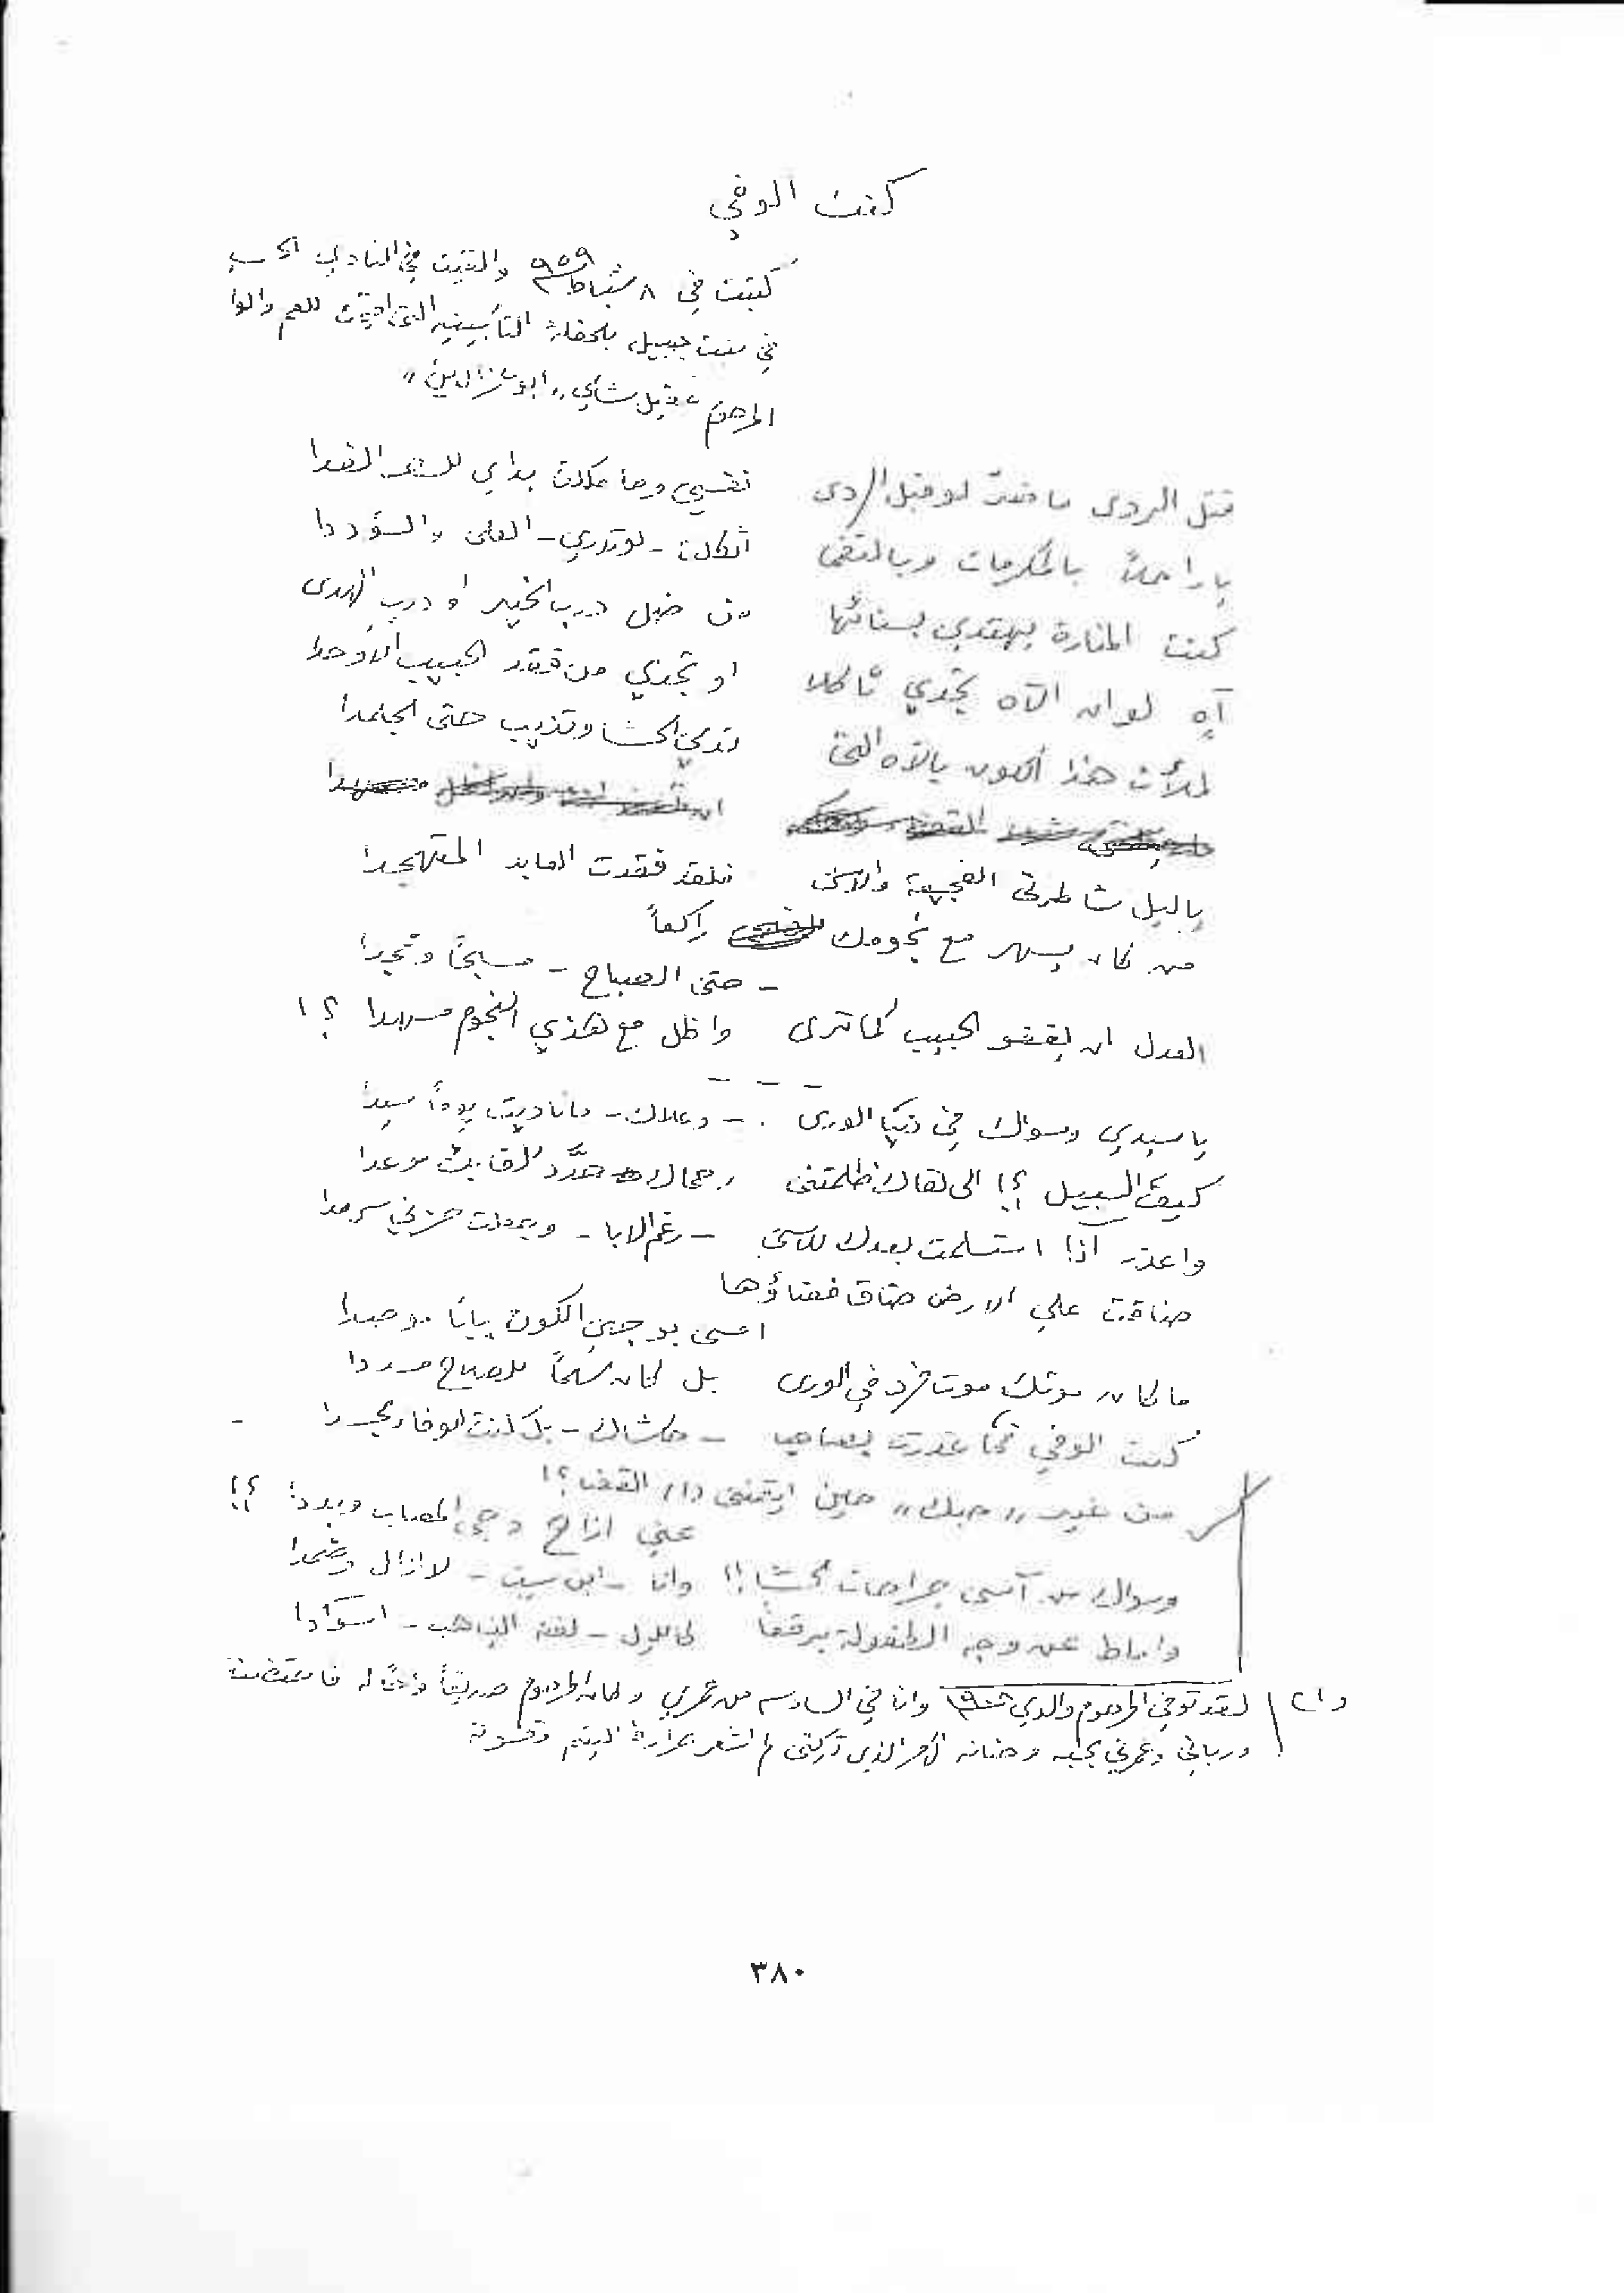 كنت الوفي
كتبت في ٨ شباط ٩٥٩ والقيت في النادي
في بنت جبيل بالحفلة التأبينية التي اقيمت للعم والوا
المرحوم عقيل شامي "ابو عز الدين"
قتل الردى ما ضر لو قبل الردى نفسي وما ملكت يداي الفدا
يا راحلاً بالمكرمات وبالتقى اثكلت - لو تدري - العلى والسؤددا
كنت المنارة يهتدي بسنائها من ضل درب الخير او درب الهدى
آهٍ لو ان الآه تجدي ثاكلا او تجدي من فقد الحبيب الاوحدا
لملأت هذا الكون بالآه التي تدمي الحشا وتذيب حتى الجلمدا
يا ليل شاطرني الفجيعة والاسى فلقد فقدت العابد المتهجدا
من كان يسهر مع نجومك راكعاً
- حتى الصباح - مسبحاً وممجدا
العدل ان يغفو الحبيب كما ترى واظل مع هذي النجوم مسهدا ؟!
يا سيدي وسواك في دنيا الورى - وعلاك - ما ناديت يوماً سيدا
كيف السبيل ؟! الى لقاك ظلمتني رحماك حدّد للقا بك موعدا
واعذر اذا استسلمت بعدك للاسى - رغم الابا - وجعلت حزني سرمدا
ضاقت علي الارض ضاق فضاؤها
امسى بوجهي الكون باباً موصدا
ما كان موتك موت فرد في الورى بل كان سهماً للصلاح مسددا
كنت الوفي فما غدرت بصاحب - حاشاك - بل كنت الوفاء مجسدا
من غير "حبك" حين ايتمني (١) القضا ؟!
عني ازاح دجى المصاب وبددا ؟!
وسواك من آسى جراحات الحشا !! وانا - ابن ست - لا ازال
واماط عن وجه الطفولة برقعاً كالليل - لفته الغياهب - اسودا
(١) لقد توفي المرحوم والدي وانا في السادسة من عمري وكان المرحوم صديقاً له
ورباني وغمرني بحبه وحنانه الامر الذي تركني لم اشعر بمرارة اليتم وقسوته
٣٨٠